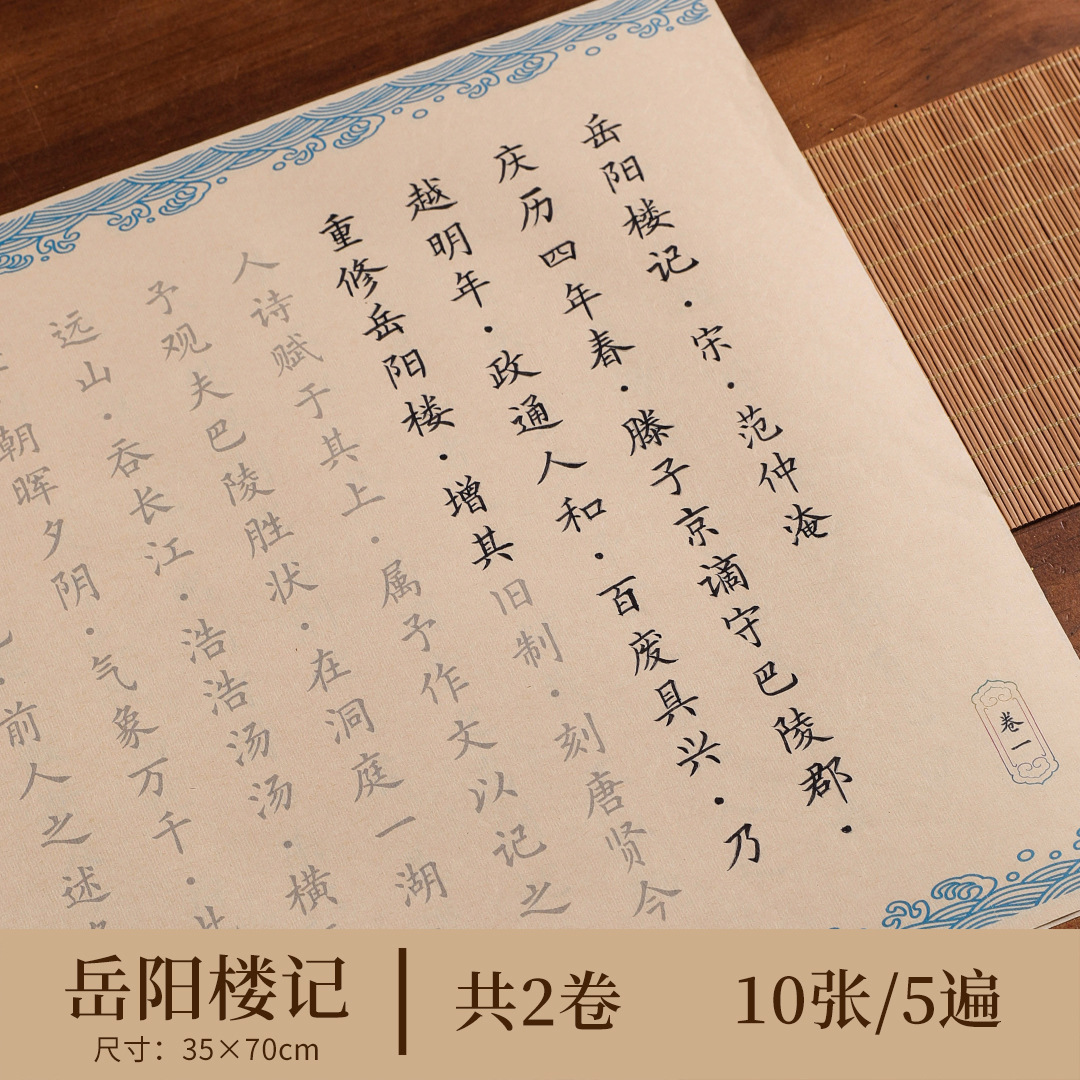 岳阳楼记·宋·范仲淹
庆历四年春·滕子京谪守巴陵郡·
越明年·政通人和·百废具兴·乃
重修岳阳楼·增其旧制·刻唐贤今
人诗赋于其上·属予作文以记之
予观夫巴陵胜状·在洞庭一湖
远山·吞长江·浩浩汤汤·横
朝晖夕阴·气象万千·
前人之述
卷一
岳阳楼记
尺寸：35×70cm
共2卷
10张/5遍